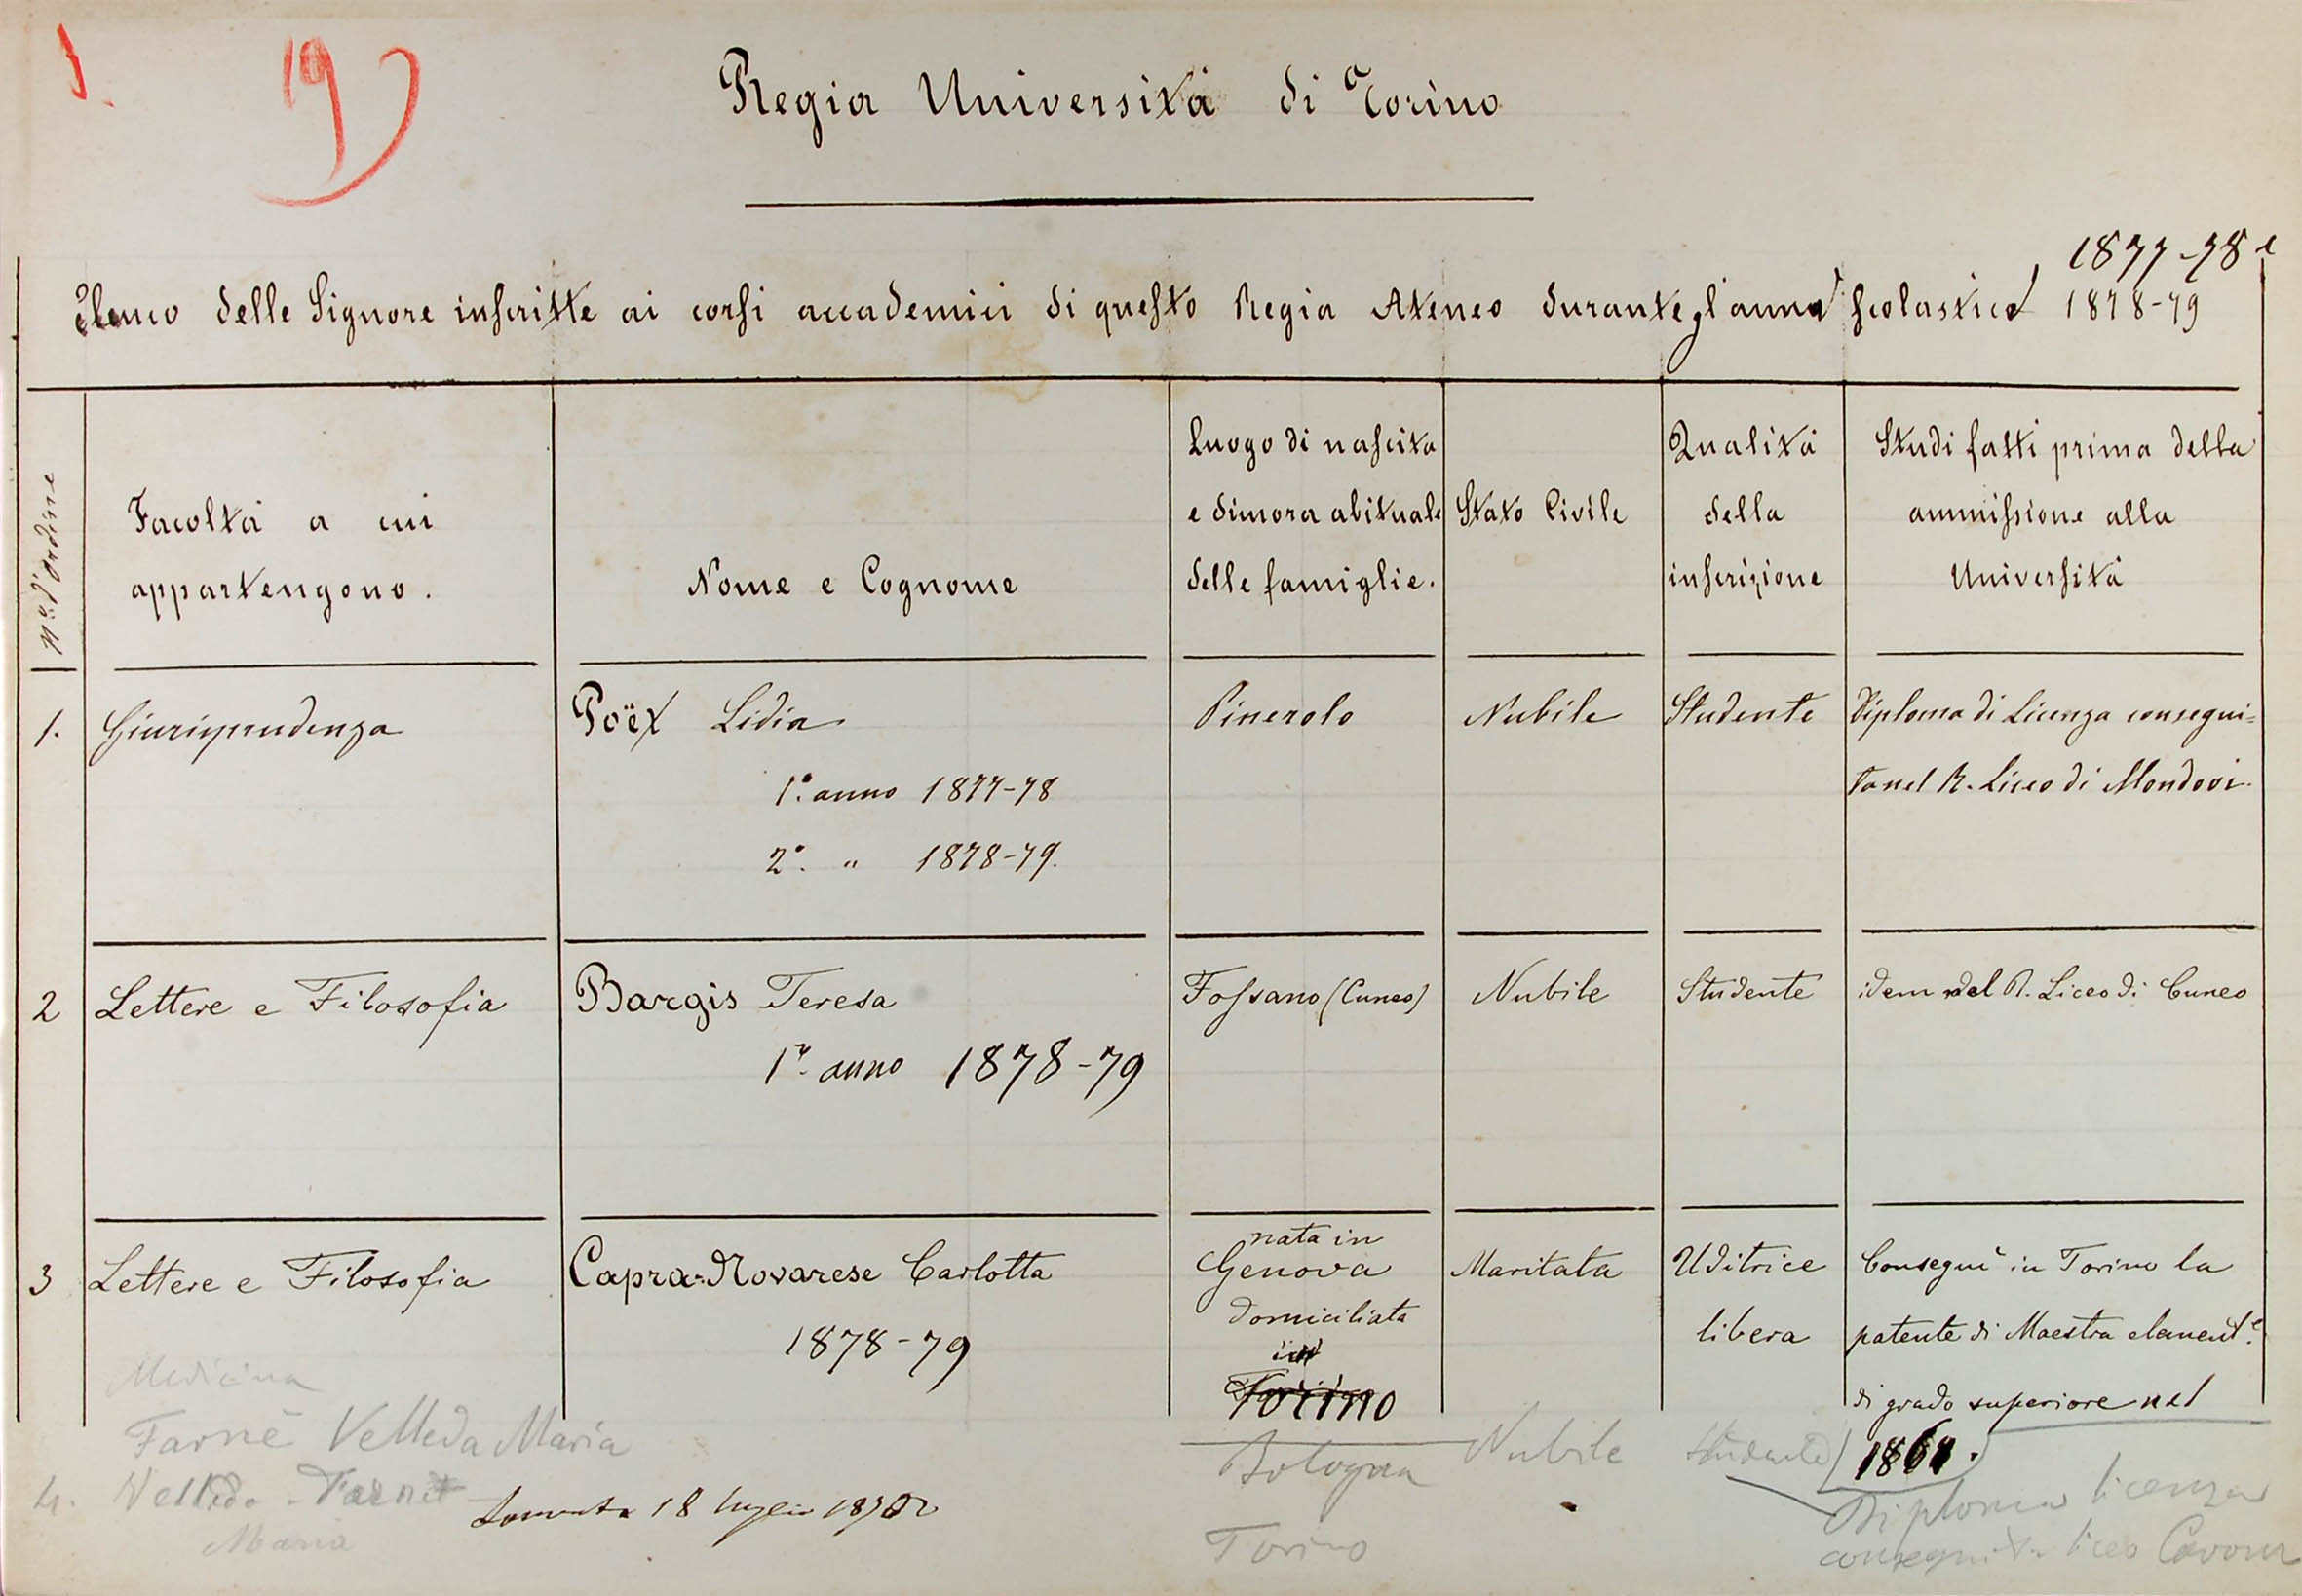 19)
Regia Università di Torino
1877-78 e
Elenco delle Signore inscritte ai corsi accademici di questo Regia Ateneo durante gl'anni scolastici 1878-79
N.° d'ordine
Facoltà a cui
appartengono.
Nome e Cognome
Luogo di nascita
e dimora abituale
delle famiglie.
Stato Civile
Qualità
della
inscrizione
Studi fatti prima della
ammissione alla
Università
1.
Giurisprudenza
Poët Lidia
1.° anno 1877-78
2.° " 1878-79.
Pinerolo
Nubile
Studente
Diploma di Licenza consegui=
ta nel R. Liceo di Mondovi.
2
Lettere e Filosofia
Bargis Teresa
1.° anno 1878-79
Fossano (Cuneo)
Nubile
Studente
idem del R. Liceo di Cuneo
3
Lettere e Filosofia
Capra-Novarese Carlotta
1878-79
nata in
Genova
domiciliata
in
Torino
Maritata
Uditrice
libera
Conseguì in Torino la
patente di Maestra element.e
di grado superiore nel
Medicina
Farnè Velleda Maria
4. Velleda - Farnè
Maria
18 luglio
Bologna
Torino
Nubile
Studente
Diploma licenza
conseguita liceo Cavour